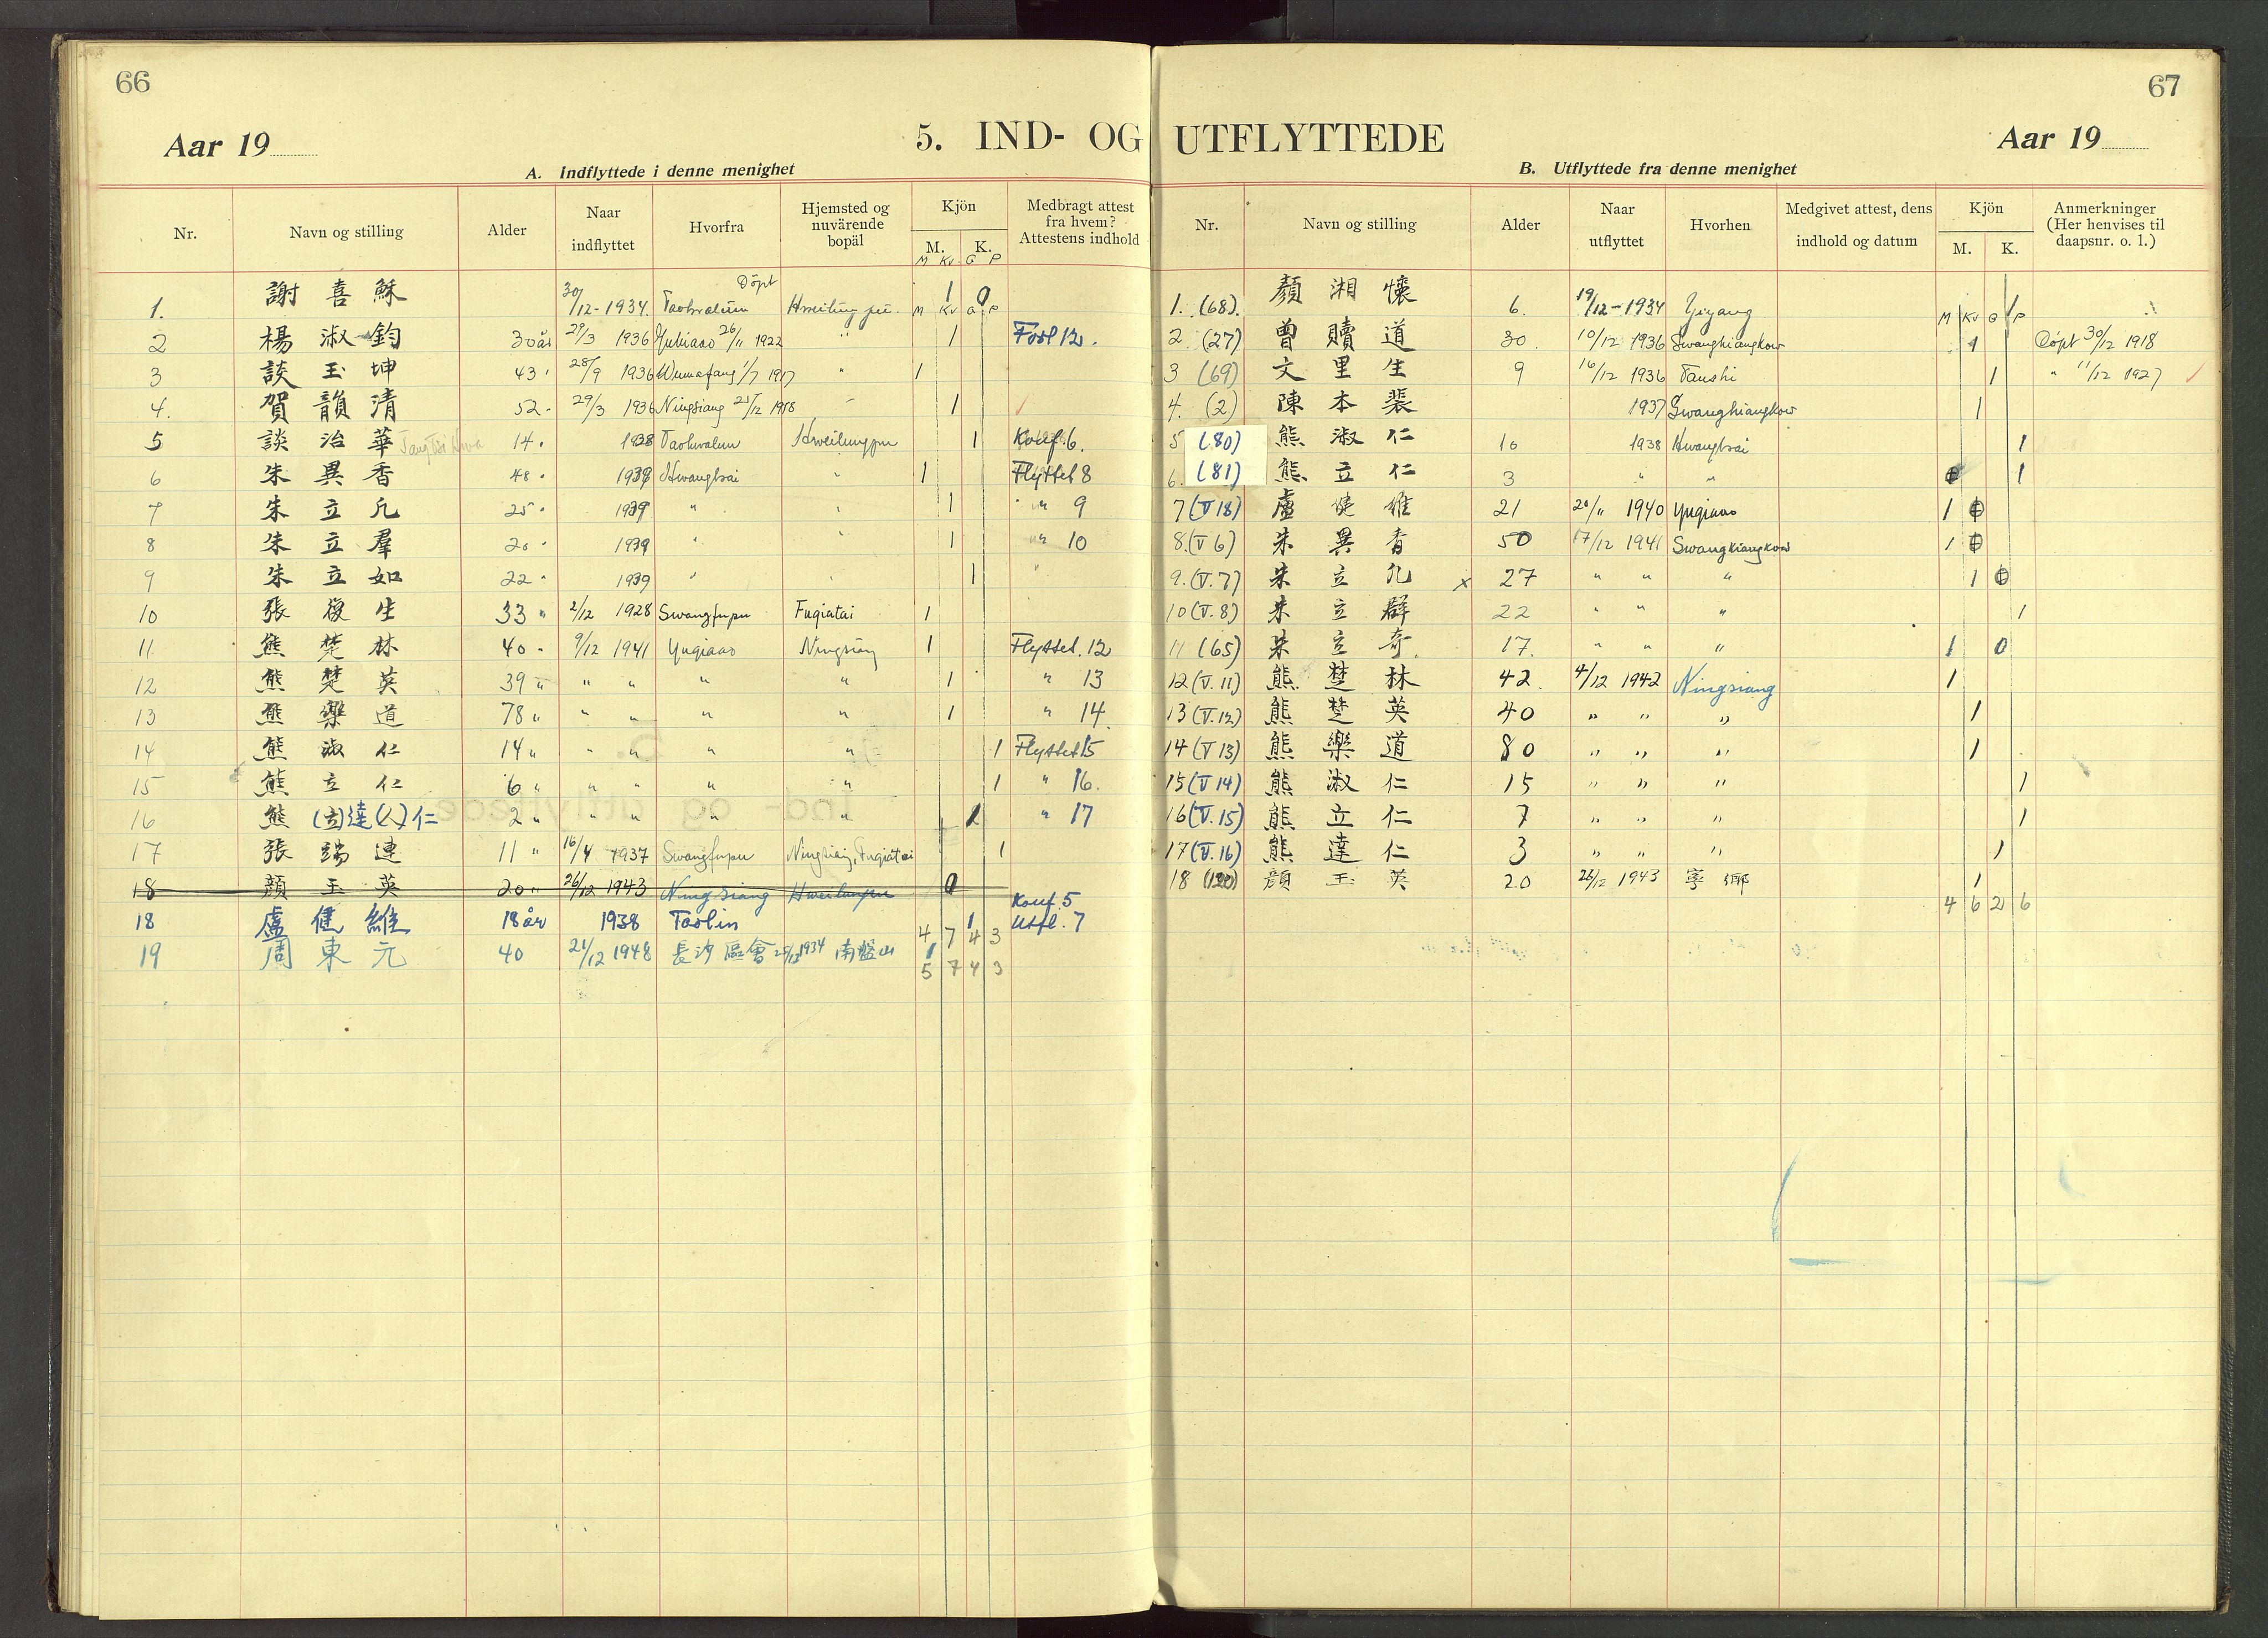 66
Aar 19
5. IND- OG
A. Indflyttede i denne menighet
Nr. Navn og stilling Alder Naar indflyttet Hvorfra Hjemsted og nuværende bopäl Kjön M. K. Medbragt attest fra hvem? Attestens indhold
M Kv G P
Döpt
1. 謝喜穌 30/12-1934. Taohwalun Hweilungpu. 1 0
M Kv G P
2 楊淑鈞 30 år 29/3 1936 Yukiaao 26/11 1922 " 1 Forl 12.
3 談玉坤 43 " 28/9 1936 Wumafang 1/7 1917 " 1
4. 賀韻清 52 " 29/3 1936 Ningsiang 25/12 1918 " 1
5 談治華 14 " 1938 Taohwalun Hweilungpu 1 Konf. 6.
6 朱異香 48 " 1939 Hwangtsai " 1 Flyttet 8
7 朱立凡 25 " 1939 " " 1 " 9
8 朱立羣 20 " 1939 " " 1 " 10
9 朱立如 22 " 1939 " " 1 "
10 張復生 33 " 2/12 1928 Swangfupu Fugiatai 1
11 熊楚林 40 " 9/12 1941 Yuqiaao Ningsiang 1 Flyttet. 12
12 熊楚英 39 " " " " " 1 " 13
13 熊樂道 78 " " " " " 1 " 14
14 熊淑仁 14 " " " " " 1 Flyttet 15
15 熊立仁 6 " " " " " 1 " 16.
16 熊(立)達(人)仁 2 " " " " " 1 " 17
17 張端連 11 " 16/4 1937 Swangfupu Ningsiang, Fugiatai 1
18 顔玉英 20 " 26/12 1943 Ningsiang Hweilungpu 0
18 盧健維 18 år 1938 Taolin 1 Konf. 5 Utfl. 7
4 7 4 3
19 周東元 40 21/12 1948 長沙區會 25/12 1934 南盤山 1
5 7 4 3
67
UTFLYTTEDE
Aar 19
B. Utflyttede fra denne menighet
Nr. Navn og stilling Alder Naar utflyttet Hvorhen Medgivet attest, dens indhold og datum Kjön M. K. Anmerkninger (Her henvises til daapsnr. o. l.)
1. (68). 顏湘懷 6. 19/12-1934 Yiyang 1
M Kv G P
2. (27) 曾贖道 30. 10/12 1936 Swanghiangkow 1 Döpt 30/12 1918
3 (69) 文里生 9 16/12 1936 Taushi 1 " 11/12 1927
4. (2) 陳本裴 1937 Swanghiangkow 1
5 (80) 熊淑仁 10 1938 Hwangtsai 1
6. (81) 熊立仁 3 " " 1
7 (V 18) 盧健維 21 20/11 1940 Yuqiaao 1
8. (V 6) 朱異香 50 17/12 1941 Swangkiangkow 1
9. (V. 7) 朱立凡 x 27 " " " 1
10 (V. 8) 朱立群 22 " " " 1
11 (65) 朱立奇 17. " " " 1 0
12 (V. 11) 熊楚林 42. 4/12 1942 Ningsiang 1
13 (V. 12) 熊楚英 40 " " " 1
14 (V 13) 熊樂道 80 " " " 1
15 (V 14) 熊淑仁 15 " " " 1
16 (V. 15) 熊立仁 7 " " " 1
17 (V. 16) 熊達仁 3 " " " 1
18 (120) 顔玉英 20 26/12 1943 寧鄉 1
4 6 2 6